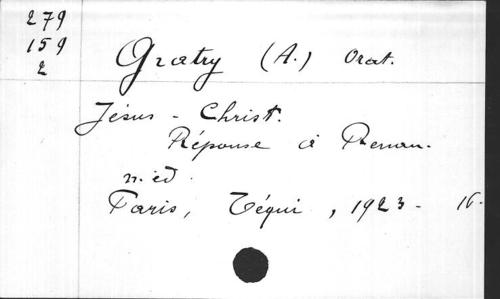 279
159
2
Gratry (A.) Orat.
Jésus - Christ.
Réponse à Renan.
n. éd.
Paris, Téqui, 1923 - 16.